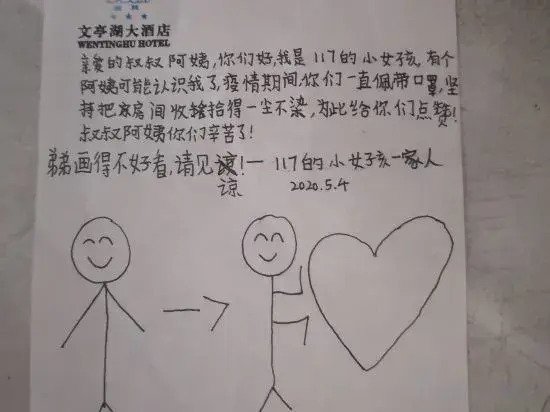 文亭湖大酒店
WENTINGHU HOTEL
亲爱的叔叔阿姨,你们好,我是117的小女孩,有个
阿姨可能认识我了,疫情期间,你们一直佩带口罩,坚
持把房间收拾得一尘不染,为此给你们点赞!
叔叔阿姨你们辛苦了!
弟弟画得不好看,请见谅!一 117的小女孩一家人
谅 2020.5.4